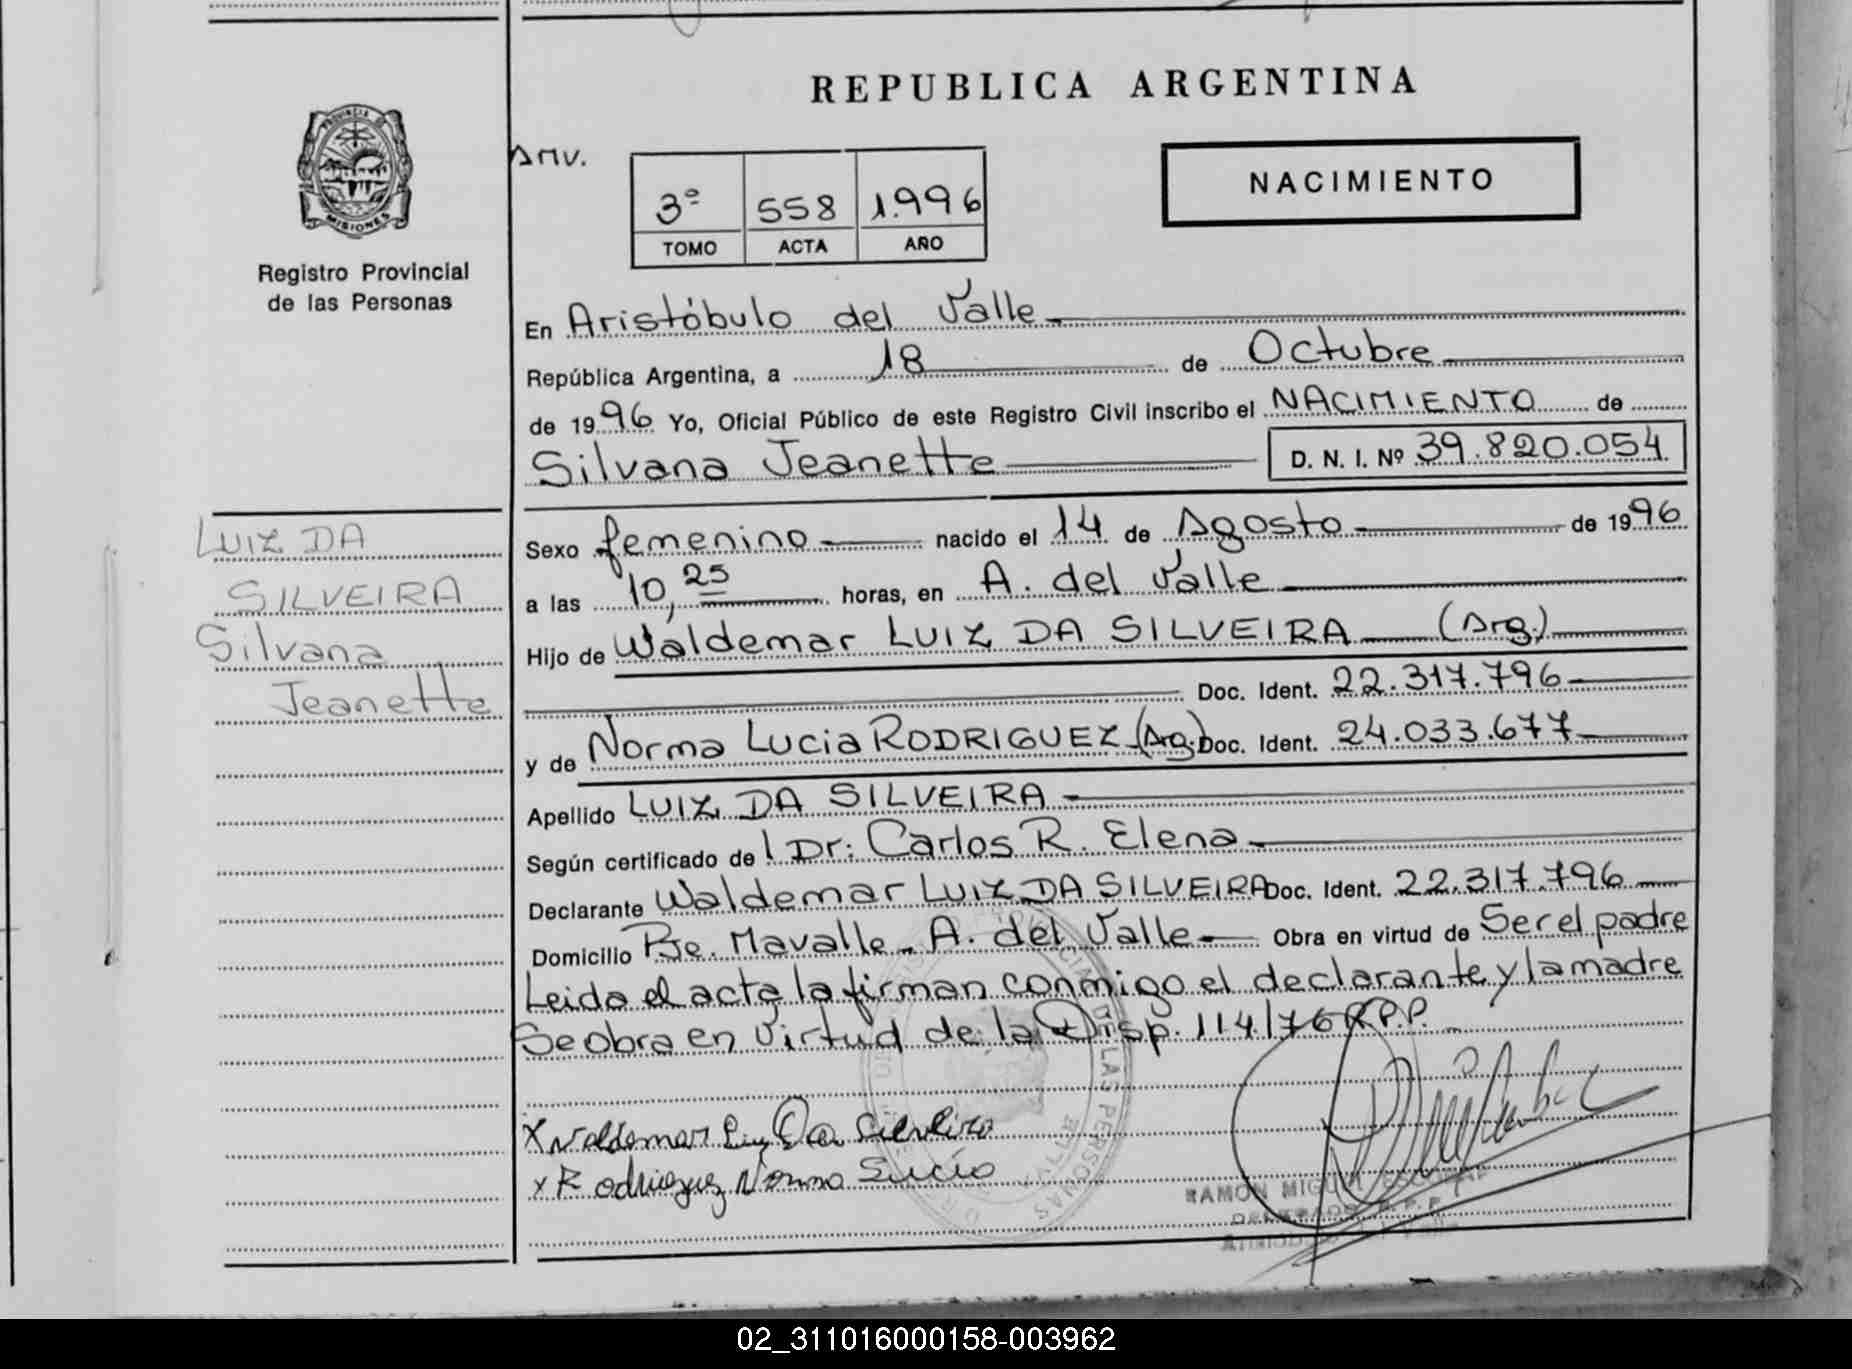 REPUBLICA ARGENTINA
PROVINCIA DE
MISIONES
Registro Provincial
de las Personas
AMV.
3º 558 1.996
TOMO ACTA AÑO
NACIMIENTO
En Aristóbulo del Valle
República Argentina, a 18 de Octubre
de 1996 Yo, Oficial Público de este Registro Civil inscribo el NACIMIENTO de
Silvana Jeanette D. N. I. Nº 39.820.054
LUIZ DA
SILVEIRA
Silvana
Jeanette
Sexo femenino nacido el 14 de Agosto de 1996
a las 10,25 horas, en A. del Valle
Hijo de Waldemar LUIZ DA SILVEIRA (Arg.)
Doc. Ident. 22.317.796
y de Norma Lucia RODRIGUEZ (Arg.) Doc. Ident. 24.033.677
Apellido LUIZ DA SILVEIRA
Según certificado de l Dr: Carlos R. Elena
Declarante Waldemar LUIZ DA SILVEIRA Doc. Ident. 22.317.796
Domicilio Pje. Mavalle - A. del Valle Obra en virtud de Ser el padre
Leida el acta la firman conmigo el declarante y la madre
Se obra en virtud de la Disp. 114/76 R.P.P.
x Waldemar Luiz Da Silveira
x Rodriguez Norma Lucia
LAS PERSONAS
RAMON MIGUEL
02_311016000158-003962